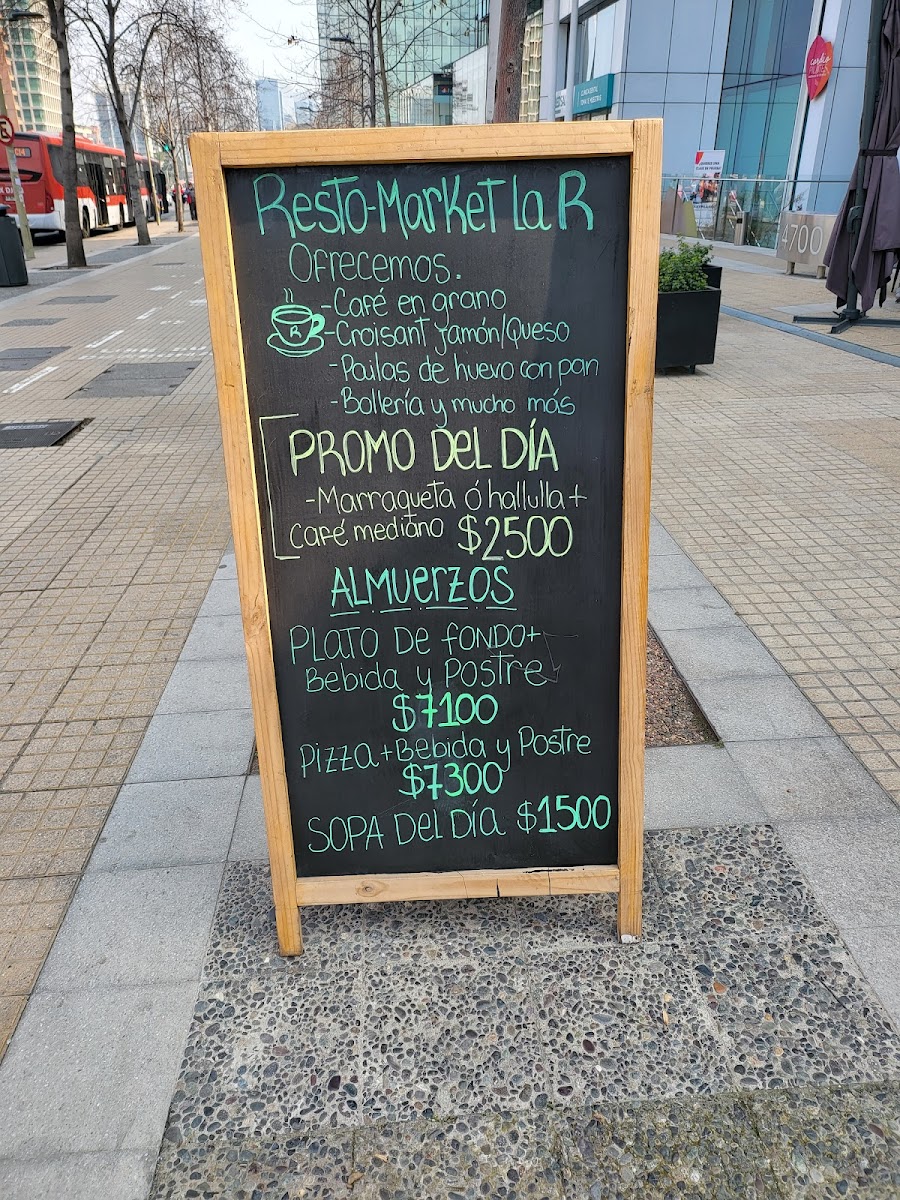 Resto-Market La R
Ofrecemos.
-Café en grano
-Croisant Jamón/Queso
-Pailas de huevo con pan
-Bollería y mucho más
R
PROMO Del DÍA
-Marraqueta ó hallulla+
Café mediano $2500
ALMuerzos
PLATO De fONDO+
Bebida y Postre
$7100
Pizza+Bebida y Postre
$7300
SOPA Del Día $1500
4700